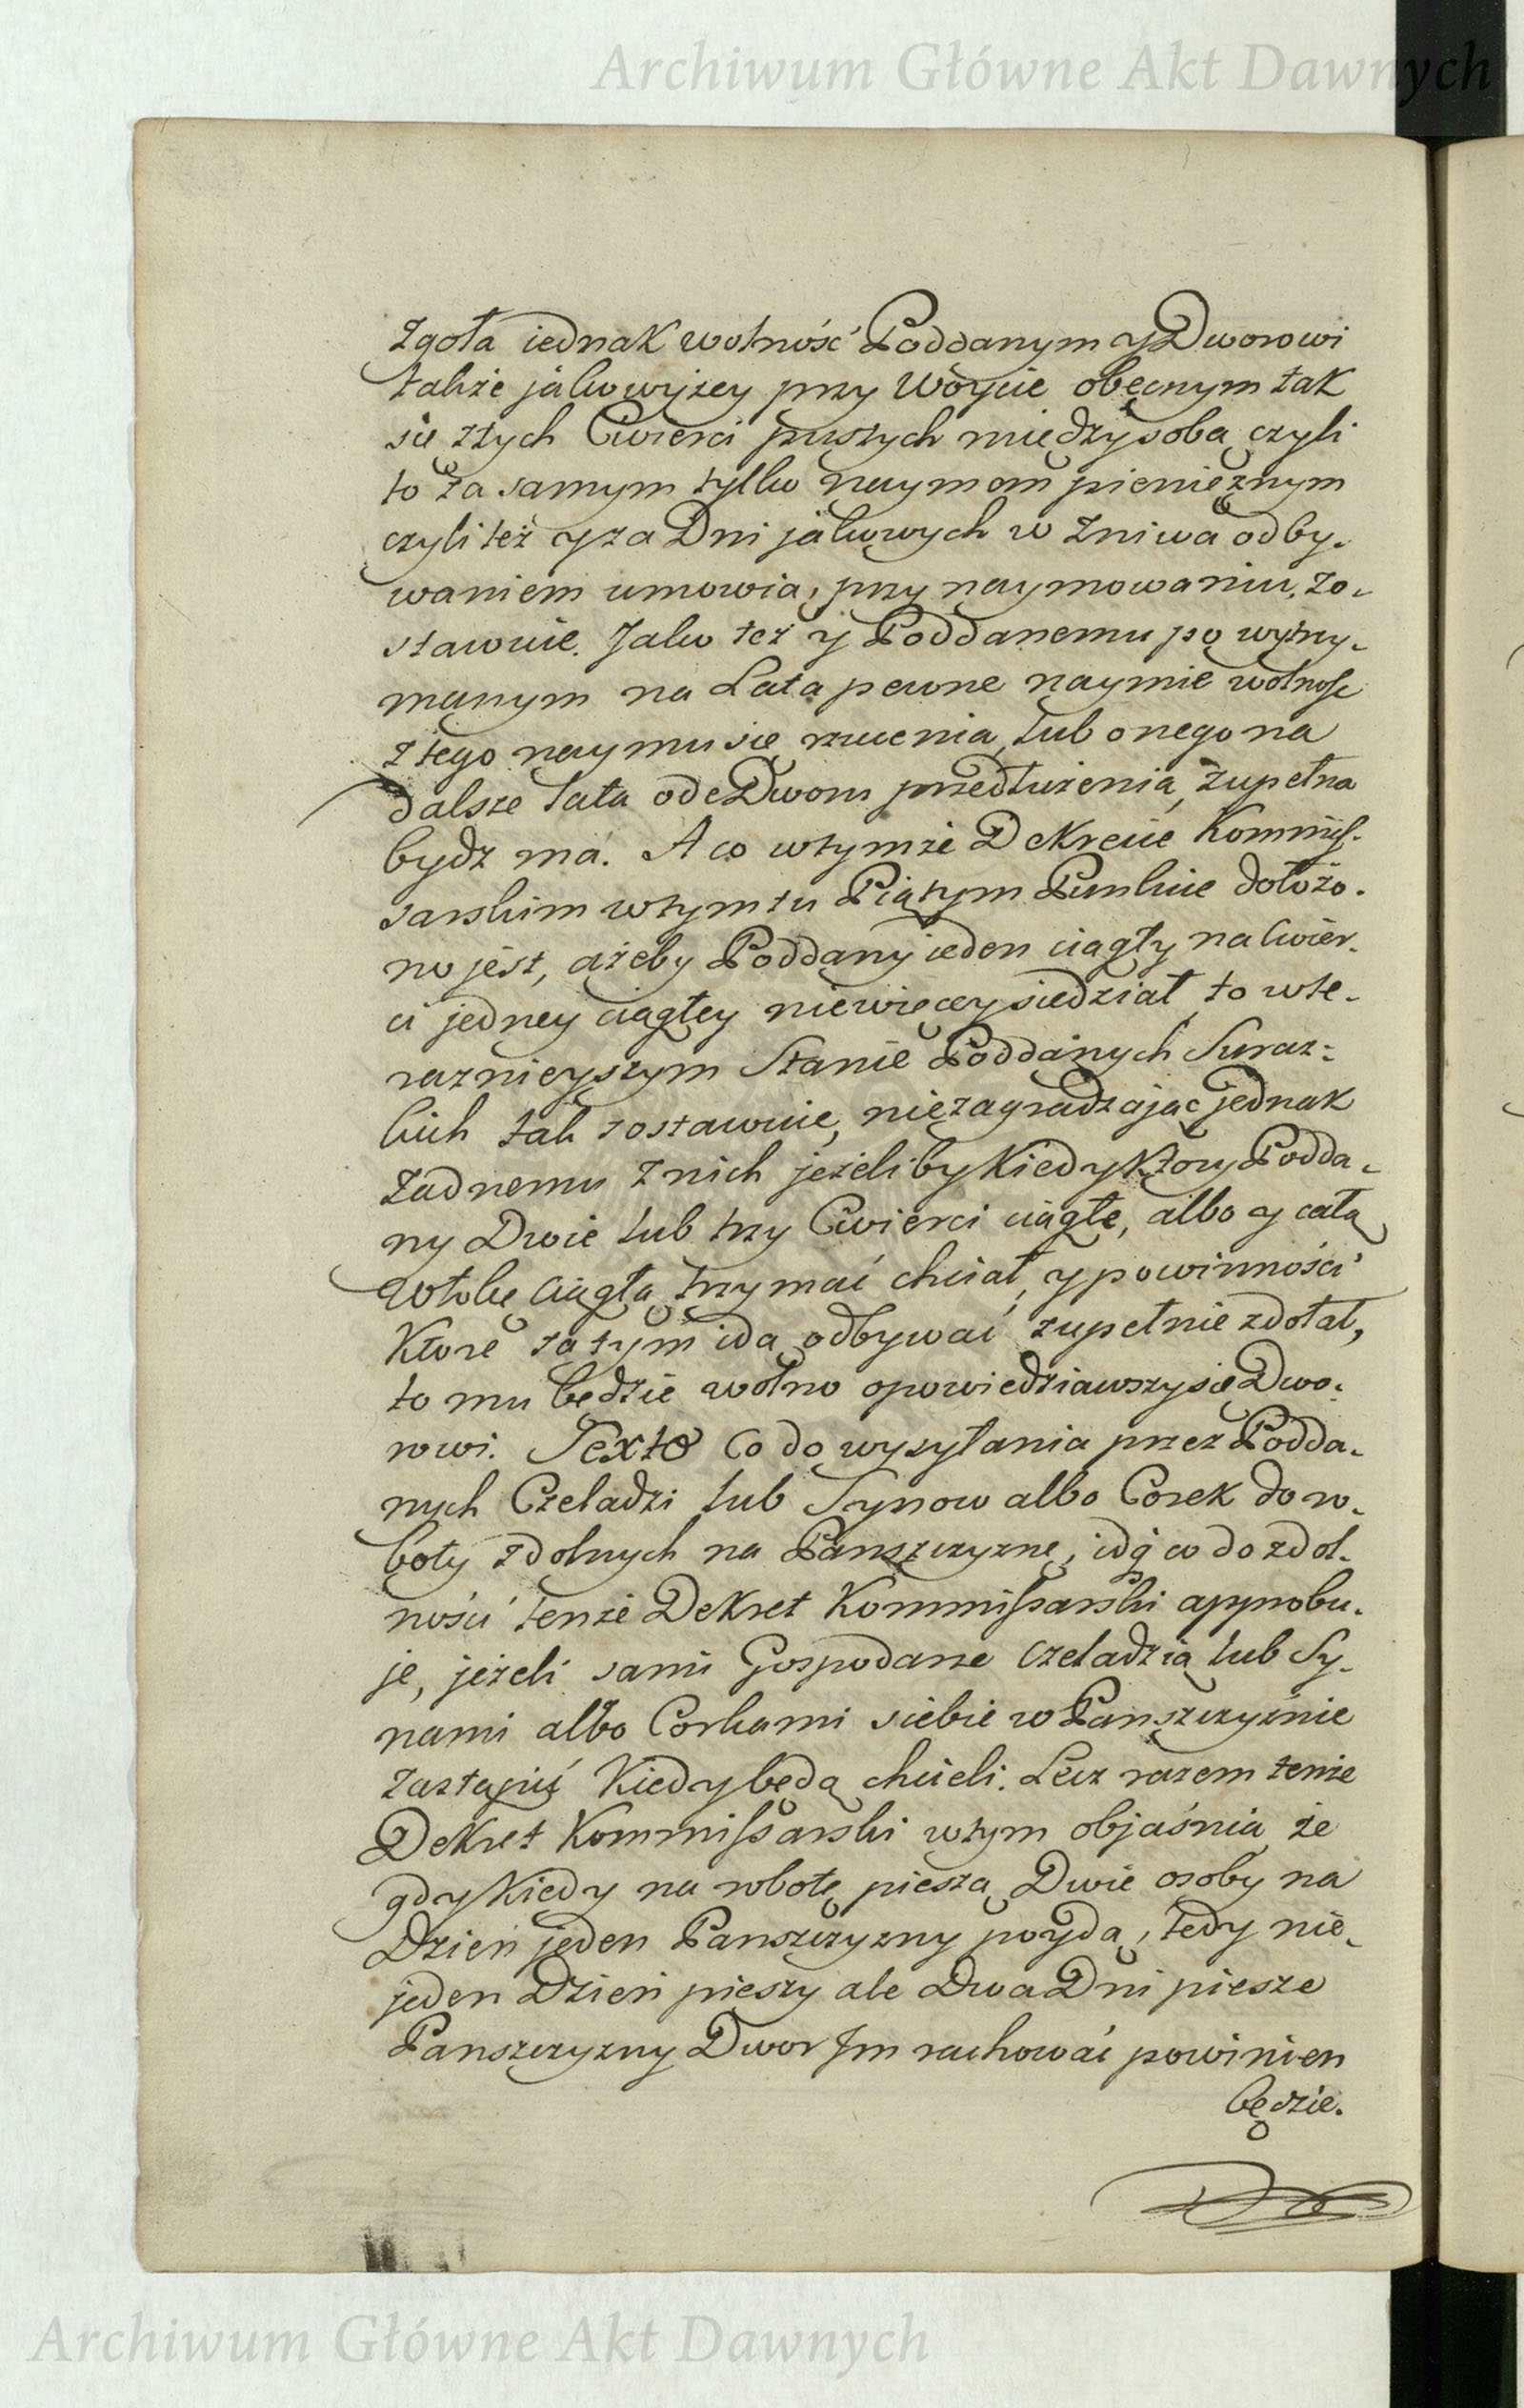 Archiwum Główne Akt Dawnych
Zgoła iednak wolność Poddanym y Dworowi
takze jako wyzey przy Woycie obecnym tak
się z tych Cwierci pustych między sobą czyli
to za samym tylko naymem pienięznym
czyli tez y za Dni jakowych w Zniwa odby-
waniem umowią, przy naymowaniu, zo-
stawuie. Jako tez y Poddanemu po wytrzy-
manym na Lata pewne naymie wolność
z tego naymu się rzucenia, lub onego na
dalsze lata ode Dworu przedłuzenia, zupełna
bydz ma. A co w tymze Dekrecie Kommis-
sarskim w tym tu Piątym Punkcie dołozo-
no jest, azeby Poddany jeden ciągły na Cwier-
ci jedney ciągłey niewięcey siedział, to w te-
raznieyszym Stanie Poddanych Suraz-
kich tak zostawuie, niezagradzając jednak
Zadnemu z nich jezeliby kiedy ktory Podda-
ny Dwie lub trzy Cwierci ciągłe, albo y całą
Włokę ciągłą trzymać chciał, y powinności
Ktore za tym idą odbywać zupełnie zdołał,
to mu będzie wolno opowiedziawszy się Dwo-
rowi. Sexto Co do wysyłania przez Podda-
nych Czeladzi lub Synow albo Corek do ro-
boty zdolnych na Panszczyznę, idq co do zdol-
ności tenze Dekret Kommissarski approbu-
je, jezeli sami Gospodarze Czeladzią lub Sy-
nami albo Corkami siebie w Panszczyznie
Zastąpić Kiedy będą chcieli. Lecz razem tenze
Dekret Kommissarski w tym objaśnia ze
gdy Kiedy na robotę pieszą Dwie osoby na
Dzień jeden Panszczyzny poydą, tedy nie-
jeden Dzień pieszy ale Dwa Dni piesze
Panszczyzny Dwor Im rachować powinien
będzie.
Archiwum Główne Akt Dawnych